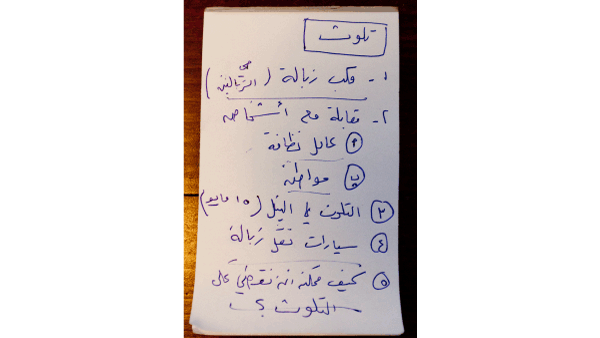 تلوث
١- مكب زبالة (حي الزبالين)
٢- مقابلة مع أشخاص
أ عامل نظافة
ب مواطن
٣ التلوث في النيل (١٥ مايو)
٤ سيارات نقل زبالة
٥ كيف ممكن ان نقضي على
التلوث ؟